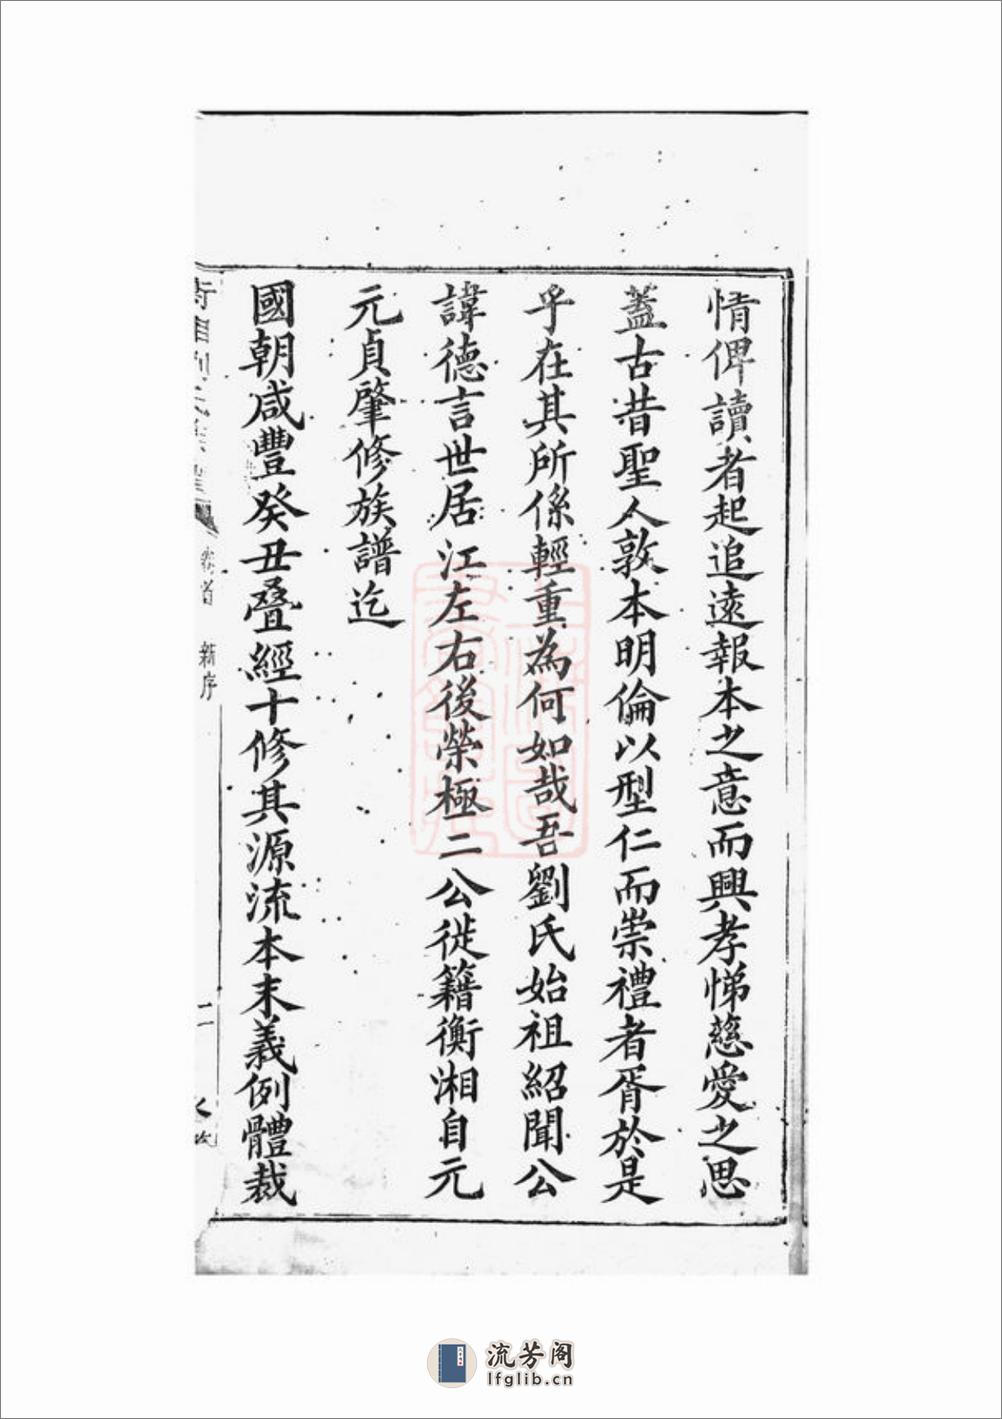 情俾讀者起追遠報本之意而興孝悌慈愛之思
蓋古昔聖人敦本明倫以型仁而崇禮者胥於是
乎在其所係輕重為何如哉吾劉氏始祖紹聞公
諱德言世居江左右後榮極二公徙籍衡湘自元
元貞肇修族譜迄
國朝咸豐癸丑叠經十修其源流本末義例體裁
卷首 新序
二
流芳阁
lfglib.cn